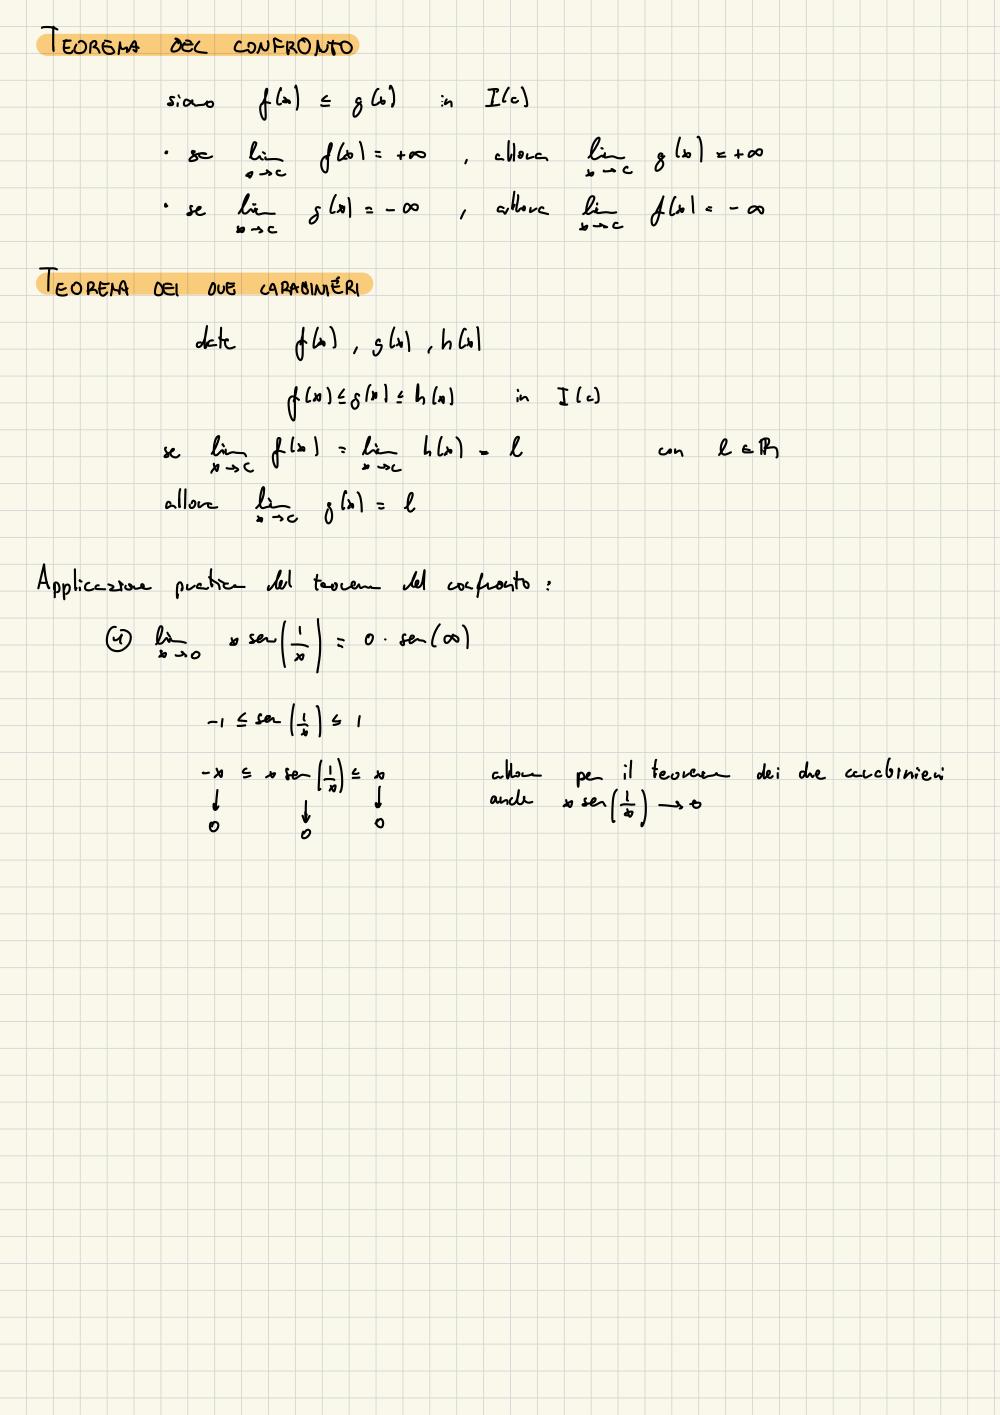 TEOREMA DEL CONFRONTO
siano f(x) ≤ g(x) in I(c)
• se lim x→c f(x) = +∞ , allora lim x→c g(x) = +∞
• se lim x→c g(x) = -∞ , allora lim x→c f(x) = -∞
TEOREMA DEI DUE CARABINIERI
date f(x) , g(x) , h(x)
f(x) ≤ g(x) ≤ h(x) in I(c)
se lim x→c f(x) = lim x→c h(x) = l con l ∈ ℝ
allora lim x→c g(x) = l
Applicazione pratica del teorema del confronto :
① lim x→0 x sen(1/x) = 0 · sen(∞)
-1 ≤ sen(1/x) ≤ 1
-x ≤ x sen(1/x) ≤ x allora per il teorema dei due carabinieri
↓ ↓ ↓ anche x sen(1/x) → 0
0 0 0